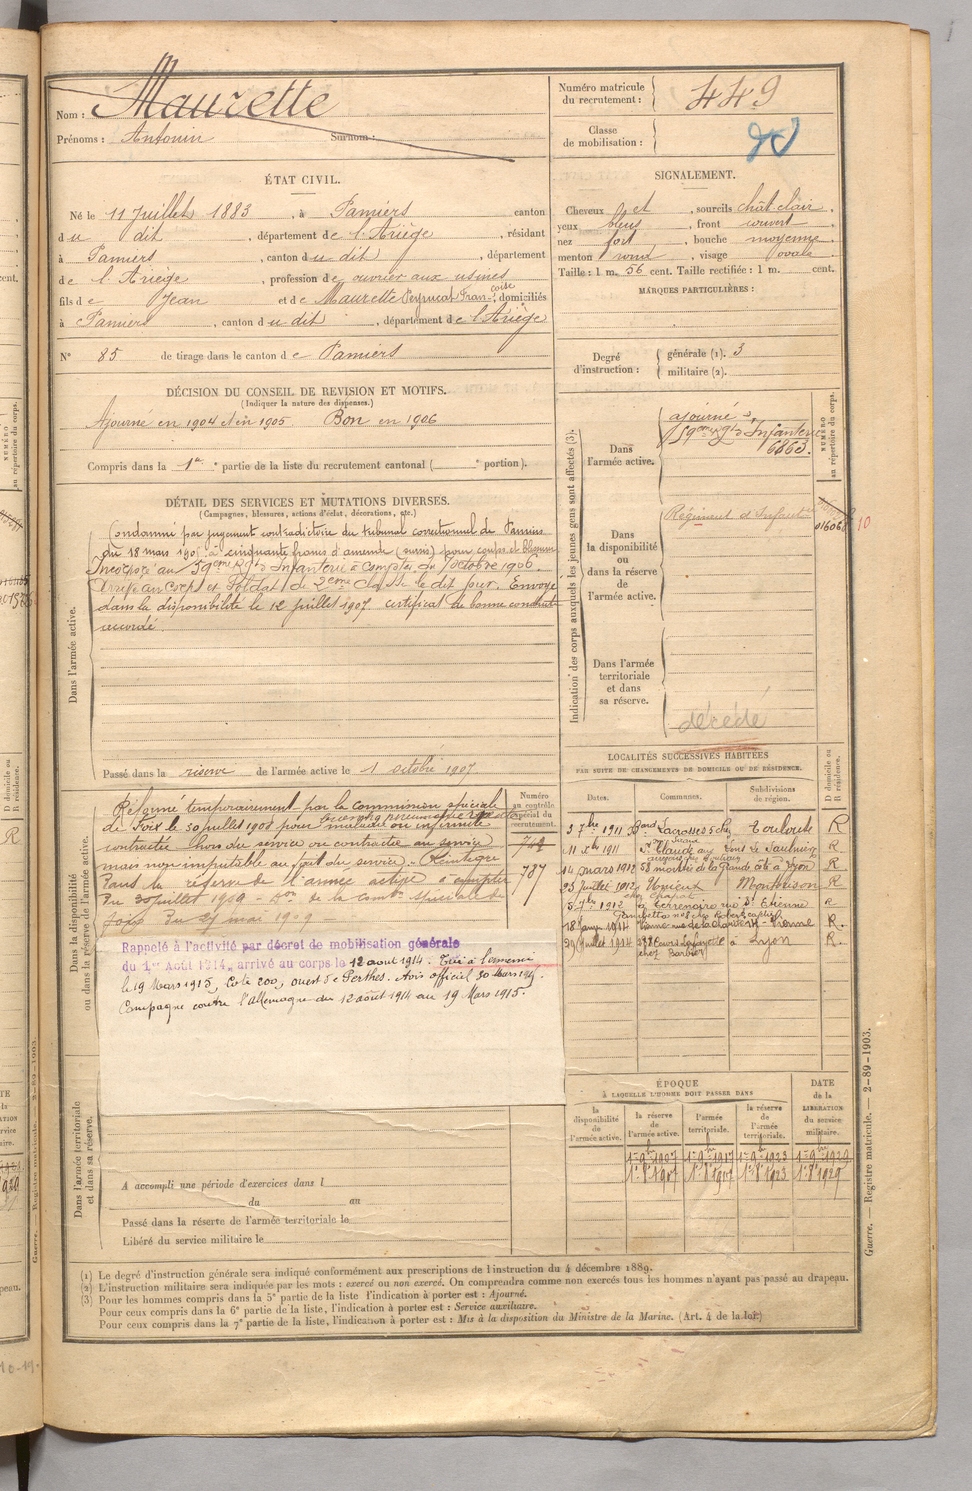 Nom : Maurette
Prénoms : Antonin Surnom :
Numéro matricule du recrutement : 449
Classe de mobilisation :
ÉTAT CIVIL.
Né le 11 Juillet 1883, à Pamiers canton
du dit, département de l'Ariège, résidant
à Pamiers, canton du dit, département
de l'Ariège, profession de ouvrier aux usines
fils de Jean et de Maurette Peyrucat Françoise, domiciliés
à Pamiers, canton du dit, département de l'Ariège
N° 85 de tirage dans le canton de Pamiers
SIGNALEMENT.
Cheveux et, sourcils chât. clair,
yeux bleus, front couvert
nez fort, bouche moyenne
menton rond, visage ovale
Taille : 1 m. 56 cent. Taille rectifiée : 1 m. cent.
MARQUES PARTICULIÈRES :
Degré d'instruction : générale (1). 3
militaire (2).
DÉCISION DU CONSEIL DE REVISION ET MOTIFS.
(Indiquer la nature des dispenses.)
Ajourné en 1904 et en 1905 Bon en 1906
Compris dans la 1re partie de la liste du recrutement cantonal ( portion).
DÉTAIL DES SERVICES ET MUTATIONS DIVERSES.
(Campagnes, blessures, actions d'éclat, décorations, etc.)
Dans l'armée active.
Condamné par jugement contradictoire du tribunal correctionnel de Pamiers
du 18 mars 190 à cinquante francs d'amende (sursis) pour coups et blessures
Incorporé au 59eme Rgt d'Infanterie à compter du 7 octobre 1906.
Arrivé au Corps et Soldat de 2eme classe le dit jour. Envoyé
dans la disponibilité le 12 juillet 1907. certificat de bonne conduite
accordé.
Passé dans la réserve de l'armée active le 1 octobre 1907
Indication des corps auxquels les jeunes gens sont affectés (3).
Dans l'armée active.
ajourné
59eme Rgt d'Infanterie
6863.
NUMÉRO au répertoire du corps.
Dans la disponibilité ou dans la réserve de l'armée active.
Régiment d'Infanterie
016068 10
Dans l'armée territoriale et dans sa réserve.
décédé
LOCALITÉS SUCCESSIVES HABITÉES
PAR SUITE DE CHANGEMENTS DE DOMICILE OU DE RÉSIDENCE.
Dates. Communes. Subdivisions de région. D domicile ou R résidence.
3 7bre 1911 Bard Lacrosses 5 chez Toulouse R
11 Xbre 1911 St Claude Lons le Saulnier R
14 mars 1912 58 montée de la Grande Côte à Lyon R
25 juillet 1912 Unieux Montbrison R
5 7bre 1912 à Terrenoire St Etienne R
18 Janv 1914 Vienne R
29 Juillet 1914 Cours Lafayette à Lyon R.
chez Barbier
Dans la disponibilité ou dans la réserve de l'armée active.
Numéro au contrôle spécial du recrutement.
787
Réformé temporairement par la Commission spéciale
de Foix le 30 juillet 1908 pour maladie ou infirmité
contractée hors du service ou contractée au service
mais non imputable au fait du service. Réintégré
dans la réserve de l'armée active à compter
du 30 juillet 1909 - Don de la comon spéciale de
Foix du 27 mai 1909 -
Rappelé à l'activité par décret de mobilisation générale
du 1er Août 1914, arrivé au corps le 12 août 1914. Tué à l'ennemi
le 19 Mars 1915, Cote 200, ouest de Perthes. Avis officiel 30 Mars 1915.
Campagne contre l'Allemagne du 12 août 1914 au 19 Mars 1915.
ÉPOQUE
À LAQUELLE L'HOMME DOIT PASSER DANS
la disponibilité de l'armée active.
la réserve de l'armée active.
l'armée territoriale.
la réserve de l'armée territoriale.
DATE de la LIBÉRATION du service militaire.
1er 8bre 1907 1er 8bre 1917 1er 8bre 1923 1er 8bre 1929
Dans l'armée territoriale et dans sa réserve.
A accompli une période d'exercices dans l
du au
Passé dans la réserve de l'armée territoriale le
Libéré du service militaire le
(1) Le degré d'instruction générale sera indiqué conformément aux prescriptions de l'instruction du 4 décembre 1889.
(2) L'instruction militaire sera indiquée par les mots : exercé ou non exercé. On comprendra comme non exercés tous les hommes n'ayant pas passé au drapeau.
(3) Pour les hommes compris dans la 5e partie de la liste l'indication à porter est : Ajourné.
Pour ceux compris dans la 6e partie de la liste, l'indication à porter est : Service auxiliaire.
Pour ceux compris dans la 7e partie de la liste, l'indication à porter est : Mis à la disposition du Ministre de la Marine. (Art. 4 de la loi.)
Guerre. — Registre matricule. — 2-89-1903.